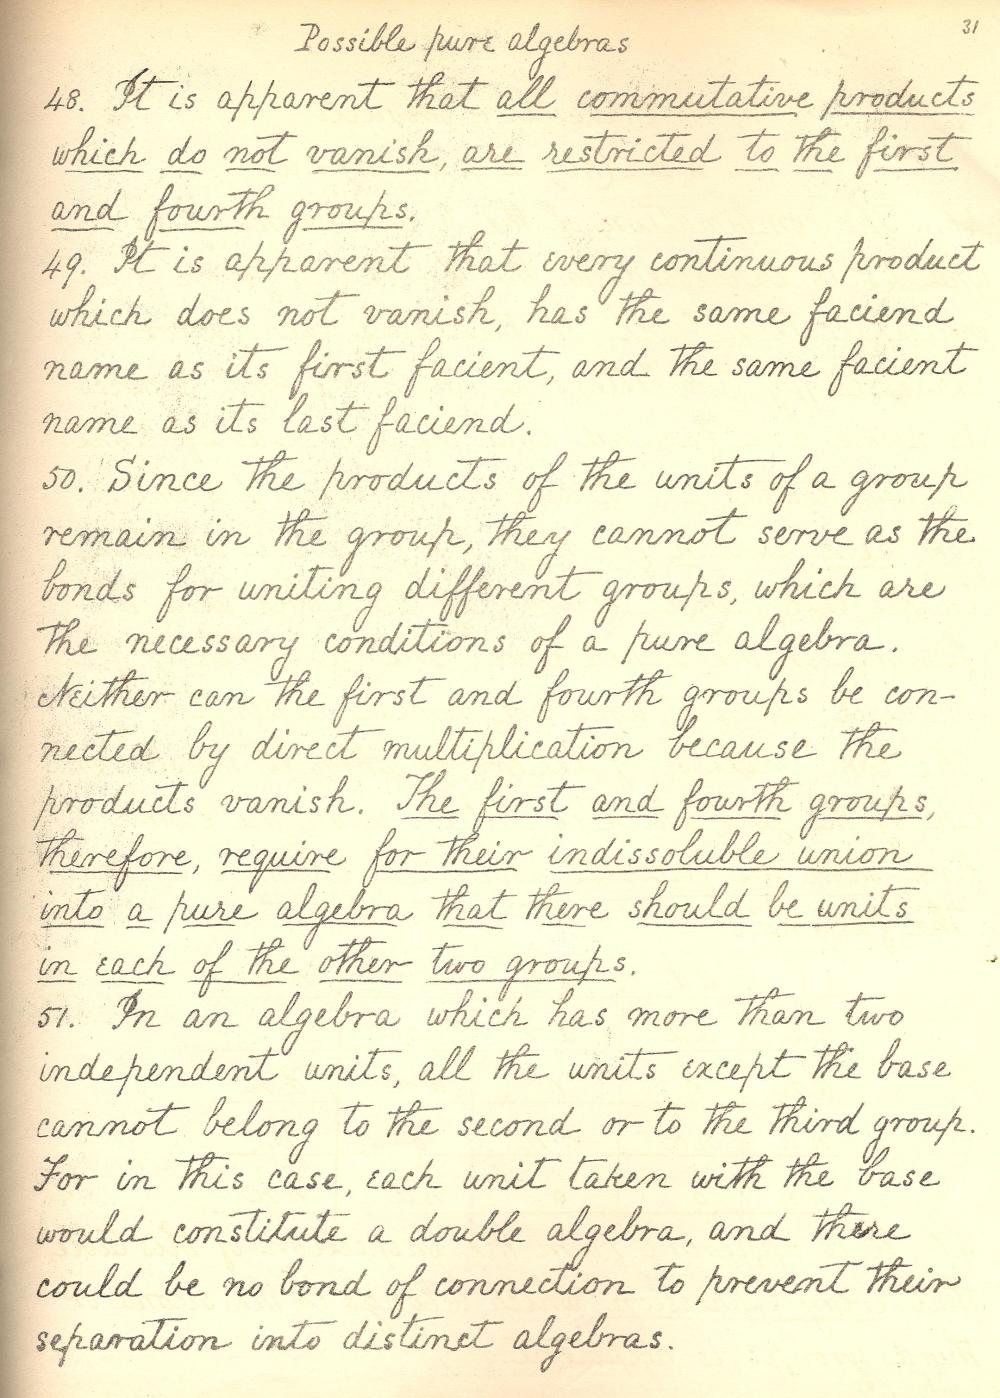 31
Possible pure algebras
48. It is apparent that all commutative products
which do not vanish, are restricted to the first
and fourth groups.
49. It is apparent that every continuous product
which does not vanish, has the same faciend
name as its first facient, and the same facient
name as its last faciend.
50. Since the products of the units of a group
remain in the group, they cannot serve as the
bonds for uniting different groups, which are
the necessary conditions of a pure algebra.
Neither can the first and fourth groups be con-
nected by direct multiplication because the
products vanish. The first and fourth groups,
therefore, require for their indissoluble union
into a pure algebra that there should be units
in each of the other two groups.
51. In an algebra which has more than two
independent units, all the units except the base
cannot belong to the second or to the third group.
For in this case, each unit taken with the base
would constitute a double algebra, and there
could be no bond of connection to prevent their
separation into distinct algebras.